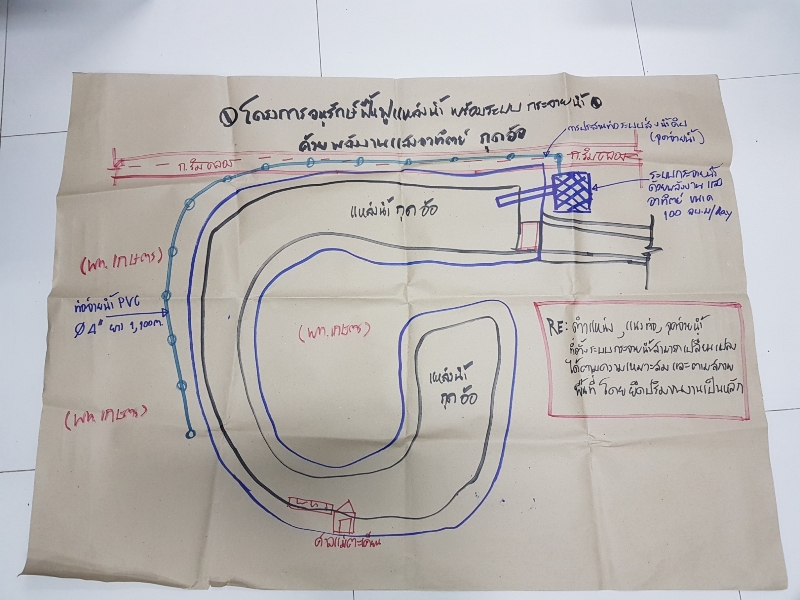 ① โครงการอนุรักษ์ฟื้นฟูแหล่งน้ำ พร้อมระบบ กระจายน้ำ
ด้วยพลังงานแสงอาทิตย์ กุดอ้อ
ถ.ริมคลอง
ถ.ริมคลอง
(จุดจ่ายน้ำ)
ระบบกระจายน้ำ
ด้วยพลังงานแสง
อาทิตย์ ขนาด
100 ลบ.ม/day
แหล่งน้ำ กุดอ้อ
(พท.เกษตร)
ท่อจ่ายน้ำ PVC
Ø 4" ยาว 1,100 ม.
(พท.เกษตร)
แหล่งน้ำ
กุดอ้อ
(พท.เกษตร)
RE: ตำแหน่ง, แนวท่อ, จุดจ่ายน้ำ
ที่ตั้งระบบกระจายน้ำสามารถเปลี่ยนแปลง
ได้ตามความเหมาะสม และตามสภาพ
พื้นที่ โดยยึดปริมาณงานเป็นหลัก
ศาลแม่ตะเคียน